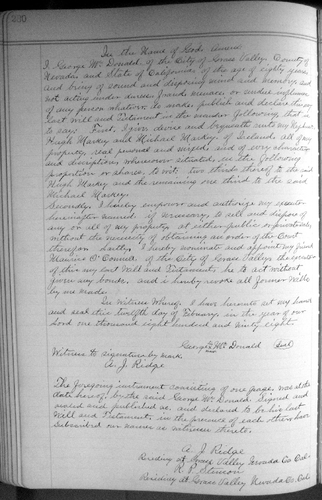 230
In the Name of God. Amen
I George Mc Donald, of the City of Grass Valley County of
Nevada and State of California, of the age of eighty years
and being of sound and disposing mind and memory and
not acting under duress, fraud, menace, or undue influence
of any person whatever, do make, publish and declare this my
last Will and Testament in the manner following, that is
to say: First, I give, devise and bequeath unto my Nephews
Hugh Markey and Michael Markey, of Ireland, all my
property, real, personal and mixed, and of every character
and description, wheresoever situated, in the following
proportion or shares, to wit: two thirds thereof to the said
Hugh Markey and the remaining one third to the said
Michael Markey.
Secondly, I hereby empower and authorize my executor
hereinafter named, if necessary, to sell and dispose of
any or all of my property, at either public or private sale,
without the necessity of obtaining an order of the Court
therefor. Lastly, I hereby nominate and appoint my friend
Maurice O'Connell, of the City of Grass Valley, the executor
of this my last Will and Testament, he to act without
giving any bonds, and I hereby revoke all former Wills
by me made.
In Witness Whereof, I have hereunto set my hand
and seal this twelfth day of February, in the year of our
Lord one thousand eight hundred and ninety eight.
George Mc Donald (Seal)
Witness to signature by mark
A. J. Ridge
The foregoing instrument consisting of one page, was at the
date hereof, by the said George Mc Donald, Signed and
sealed and published as, and declared to be his last
Will and Testament, in the presence of each other, have
subscribed our names as witnesses thereto.
A. J. Ridge
Residing at Grass Valley Nevada Co. Cal.
Residing at Grass Valley Nevada Co. Cal.